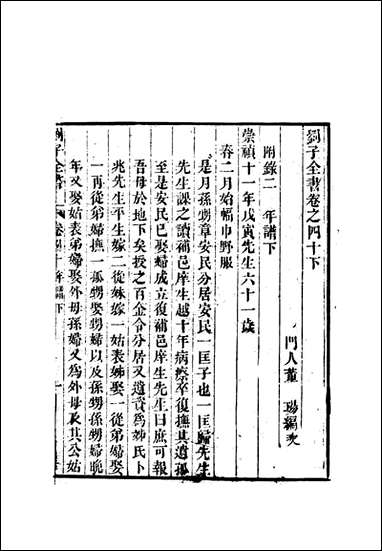 劉子全書卷之四十下
門人董　瑒編次
附錄二　年譜下
崇禎十一年戊寅先生六十一歲
春二月始幅巾野服
是月孫甥章安民分居安民一匡子也一匡歸先生
先生課之讀補邑庠生越十年病瘵卒復撫其遺孤
至是安民已娶婦成立復補邑庠生先生曰庶可報
吾母於地下矣授之百金令分居又遺資爲姊氏卜
兆先生平生嫁二從妹嫁一姑表姊娶一從弟婦娶
一再從弟婦撫一孤甥娶甥婦以及孫甥孫甥婦晚
年又娶姑表弟婦娶外母孫婦又為外母及其公姑
劉子全書　卷四十　年譜下